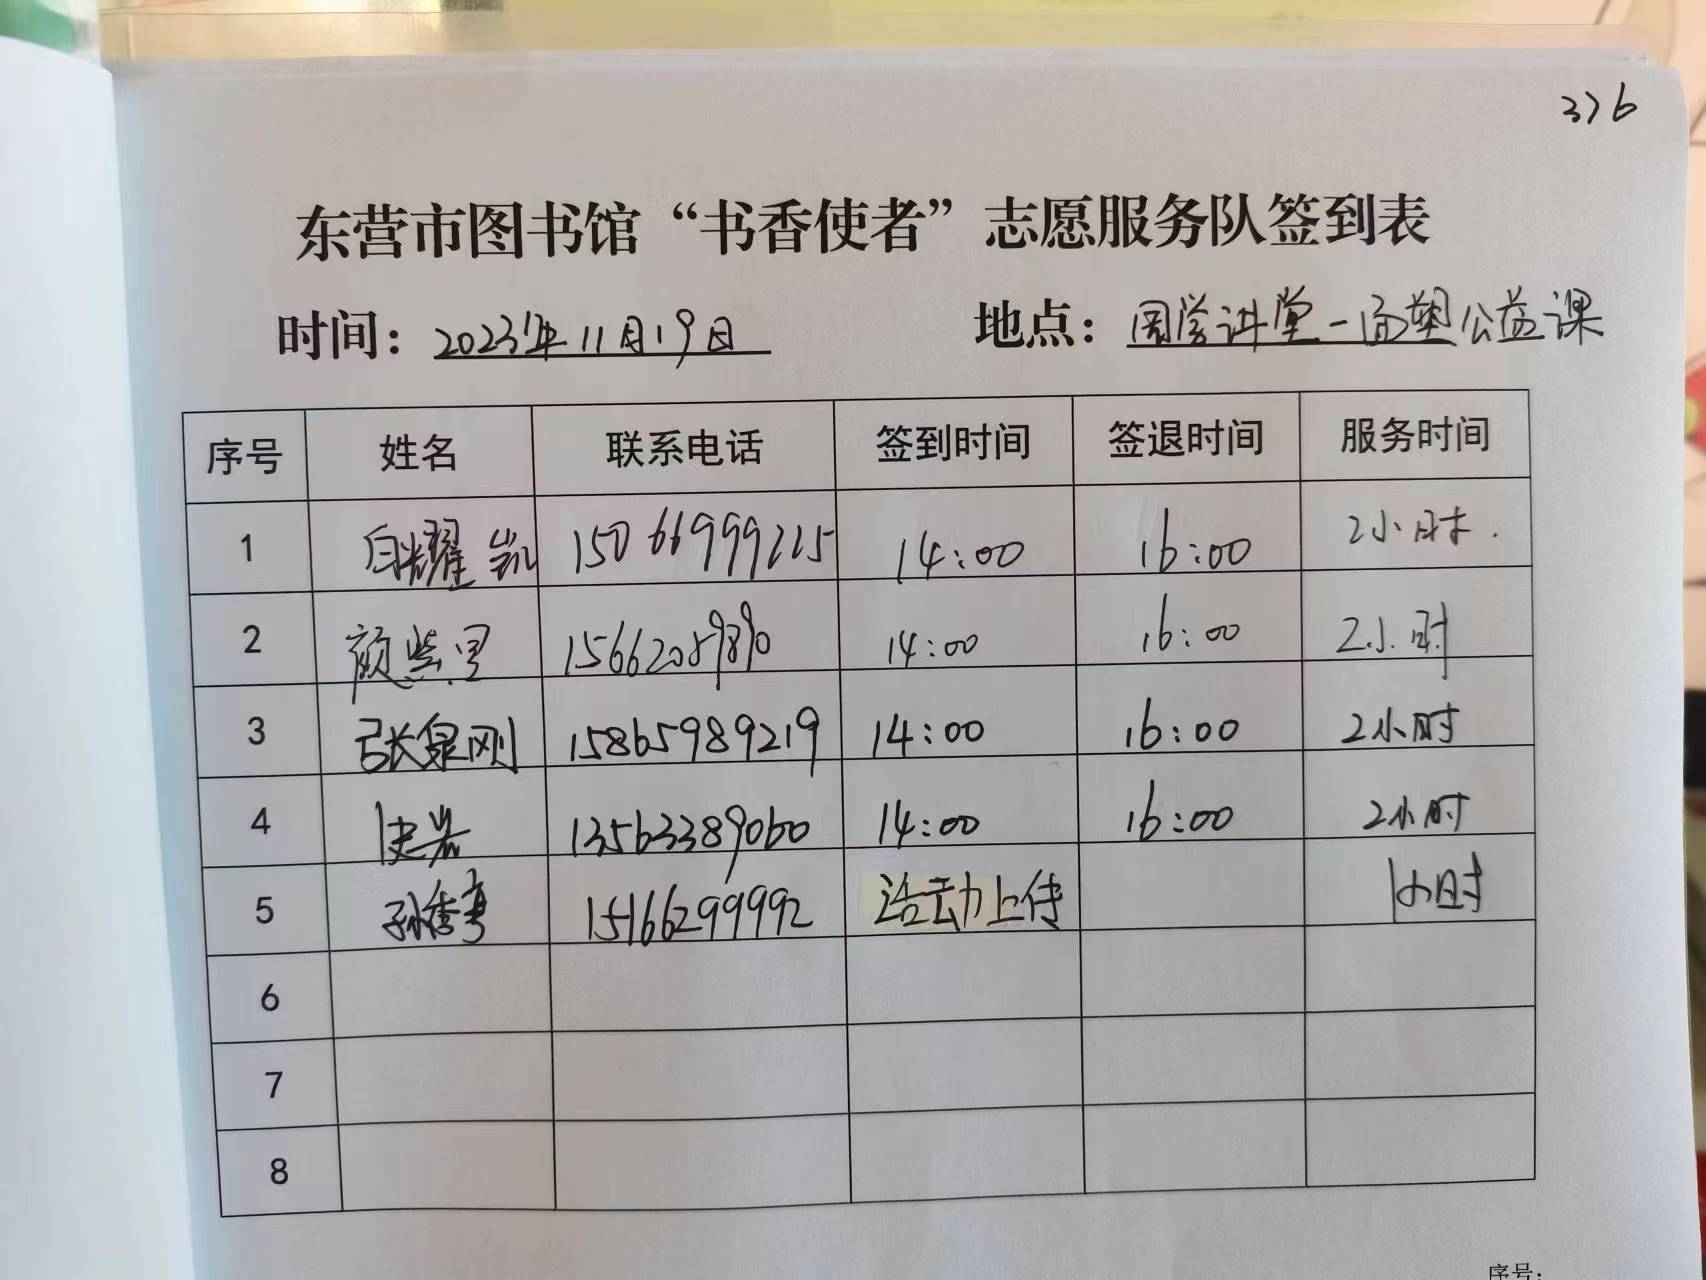 376
东营市图书馆“书香使者”志愿服务队签到表
时间：2023年11月19日 地点：国学讲堂-面塑公益课
序号 姓名 联系电话 签到时间 签退时间 服务时间
1 白耀凯 15066999225 14:00 16:00 2小时.
2 颜 15662089890 14:00 16:00 2小时
3 张泉刚 15865989219 14:00 16:00 2小时
4 13563389060 14:00 16:00 2小时
5 孙 15166299992 活动上传 1小时
6
7
8
序号：